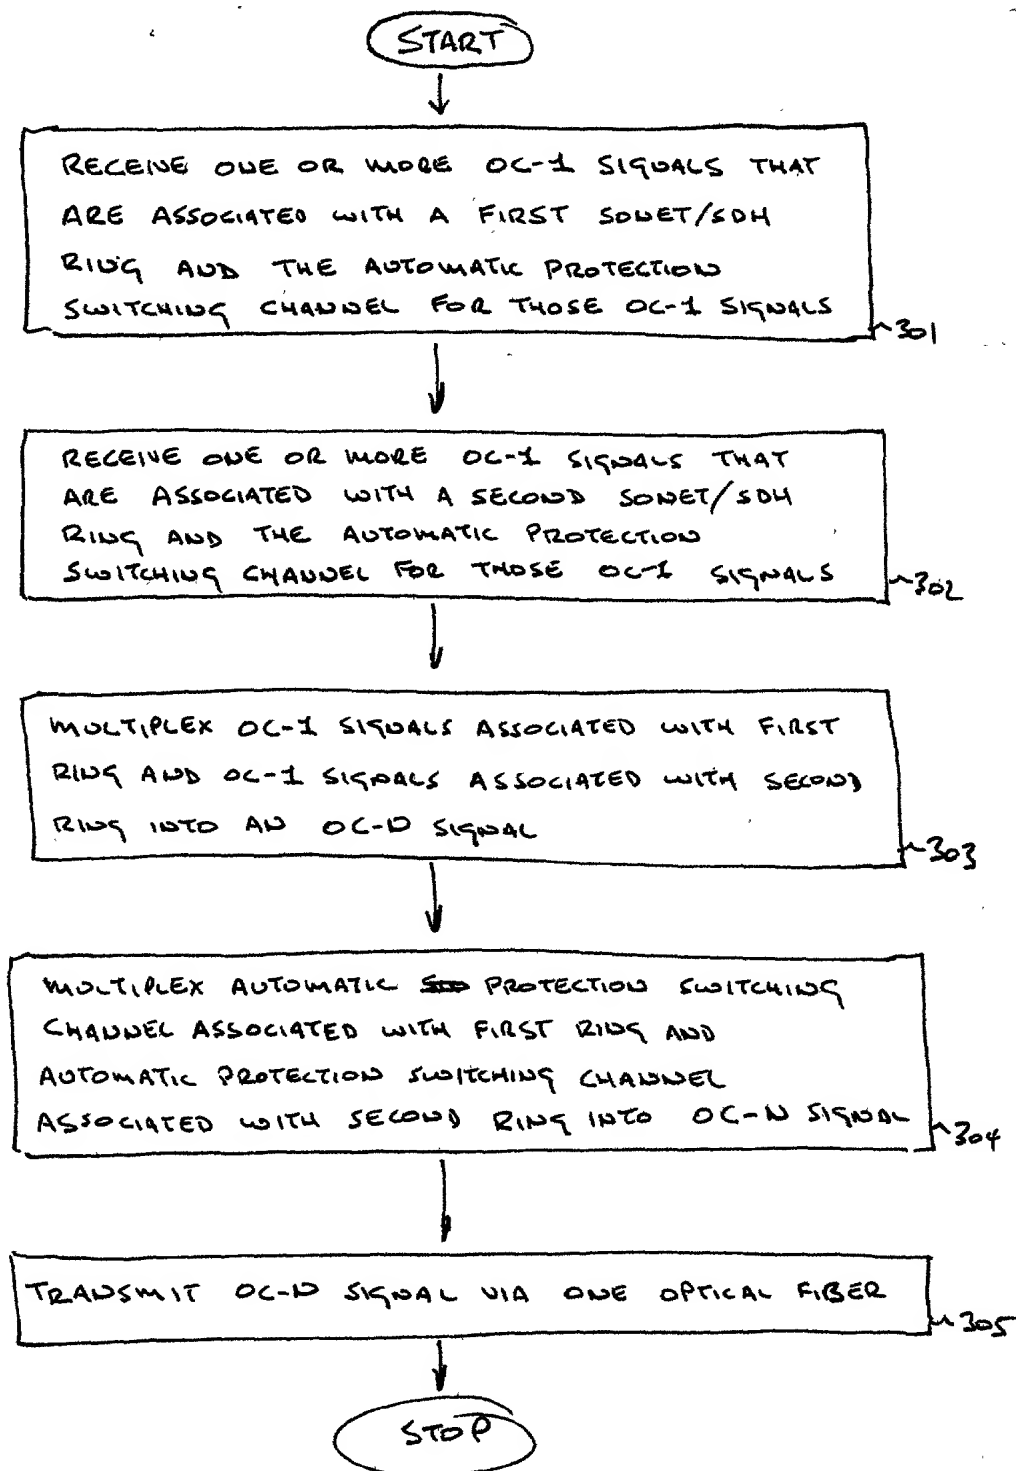 START
RECEIVE ONE OR MORE OC-1 SIGNALS THAT
ARE ASSOCIATED WITH A FIRST SONET/SDH
RING AND THE AUTOMATIC PROTECTION
SWITCHING CHANNEL FOR THOSE OC-1 SIGNALS
301
RECEIVE ONE OR MORE OC-1 SIGNALS THAT
ARE ASSOCIATED WITH A SECOND SONET/SDH
RING AND THE AUTOMATIC PROTECTION
SWITCHING CHANNEL FOR THOSE OC-1 SIGNALS
302
MULTIPLEX OC-1 SIGNALS ASSOCIATED WITH FIRST
RING AND OC-1 SIGNALS ASSOCIATED WITH SECOND
RING INTO AN OC-N SIGNAL
303
MULTIPLEX AUTOMATIC PROTECTION SWITCHING
CHANNEL ASSOCIATED WITH FIRST RING AND
AUTOMATIC PROTECTION SWITCHING CHANNEL
ASSOCIATED WITH SECOND RING INTO OC-N SIGNAL
304
TRANSMIT OC-N SIGNAL VIA ONE OPTICAL FIBER
305
STOP